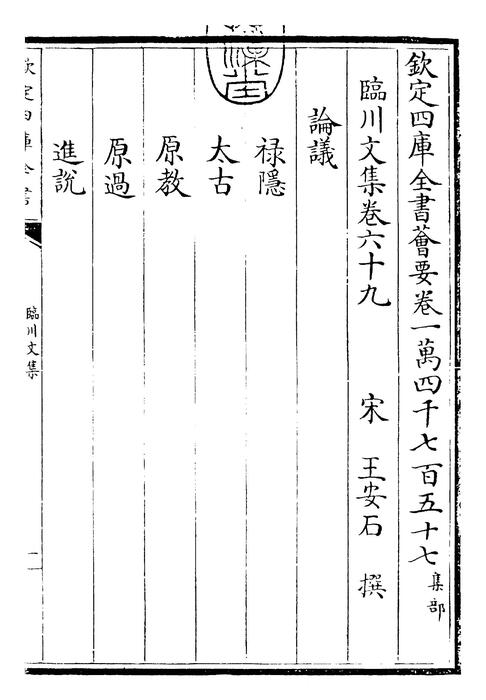 欽定四庫全書薈要卷一萬四千七百五十七 集部
臨川文集卷六十九 宋 王安石 撰
論議
禄隱
太古
原教
原過
進說
欽定四庫全書
臨川文集
一